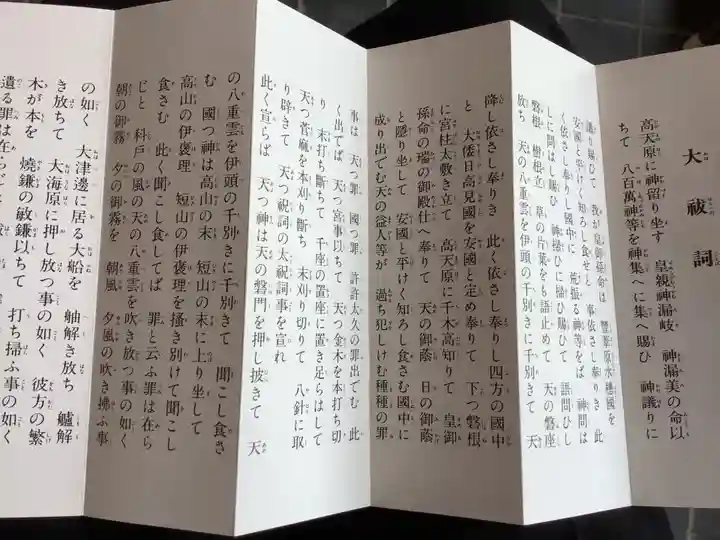 大祓詞
高天原に神留り坐す 皇親神漏岐 神漏美の命以
ちて 八百萬神等を神集へに集へ賜ひ 神議りに
議り賜ひて 我が皇御孫命は 豐葦原水穂國を
安國と平けく知ろし食せと 事依さし奉りき 此
く依さし奉りし國中に 荒振る神等をば 神問は
しに問はし賜ひ 神掃ひに掃ひ賜ひて 語問ひし
磐根 樹根立 草の片葉をも語止めて 天の磐座
放ち 天の八重雲を伊頭の千別きに千別きて 天
降し依さし奉りき 此く依さし奉りし四方の國中
と 大倭日高見國を安國と定め奉りて 下つ磐根
に宮柱太敷き立て 高天原に千木高知りて 皇御
孫命の瑞の御殿仕へ奉りて 天の御蔭 日の御蔭
と隱り坐して 安國と平けく知ろし食さむ國中に
成り出でむ天の益人等が 過ち犯しけむ種種の罪
事は 天つ罪 國つ罪 許許太久の罪出でむ 此
く出でば 天つ宮事以ちて 天つ金木を本打ち切
り 末打ち斷ちて 千座の置座に置き足らはして
天つ菅麻を本刈り斷ち 末刈り切りて 八針に取
り辟きて 天つ祝詞の太祝詞事を宣れ
此く宣らば 天つ神は天の磐門を押し披きて 天
の八重雲を伊頭の千別きに千別きて 聞こし食さ
む 國つ神は高山の末 短山の末に上り坐して
高山の伊褒理 短山の伊褒理を搔き別けて聞こし
食さむ 此く聞こし食してば 罪と云ふ罪は在ら
じと 科戸の風の天の八重雲を吹き放つ事の如く
朝の御霧 夕の御霧を 朝風 夕風の吹き拂ふ事
の如く 大津邊に居る大船を 舳解き放ち 艫解
き放ちて 大海原に押し放つ事の如く 彼方の繁
木が本を 燒鎌の敏鎌以ちて 打ち掃ふ事の如く
遺る罪は在らじと